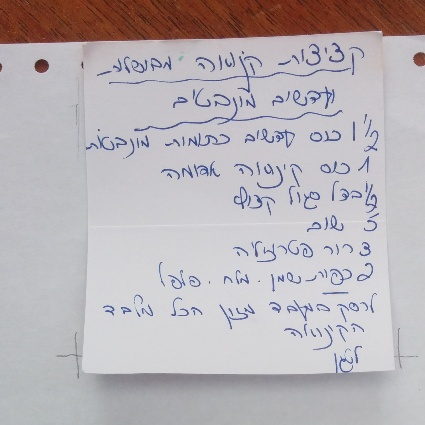 קציצות קינואה מבושלת
ועדשים מונבטים
1 1/2 כוס עדשים כתומות מונבטות
1 כוס קינואה אדומה
1/2 בצל סגול קצוץ
5 שום
צרור פטרוזיליה
2 כפיות שמן . מלח . פלפל
לרסק במעבד מזון הכל מלבד
הקינואה